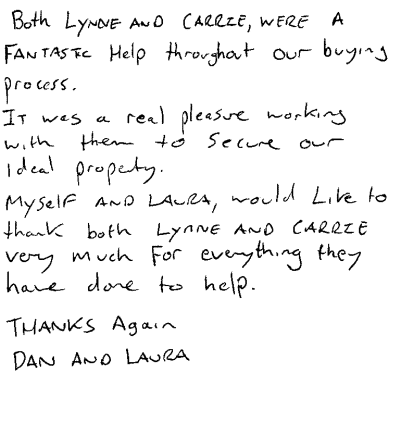 Both LYNNE AND CARRIE, WERE A
FANTASTIC Help throughout our buying
process.
IT was a real pleasure working
with them to secure our
ideal property.
MYSELF AND LAURA, would Like to
thank both LYNNE AND CARRIE
very much For everything they
have done to help.
THANKS Again
DAN AND LAURA